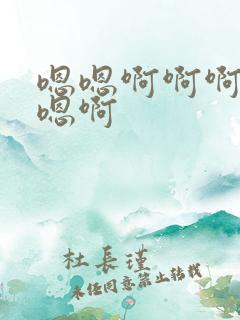 嗯嗯啊啊啊
嗯啊
杜長瑾
未经同意禁止转载